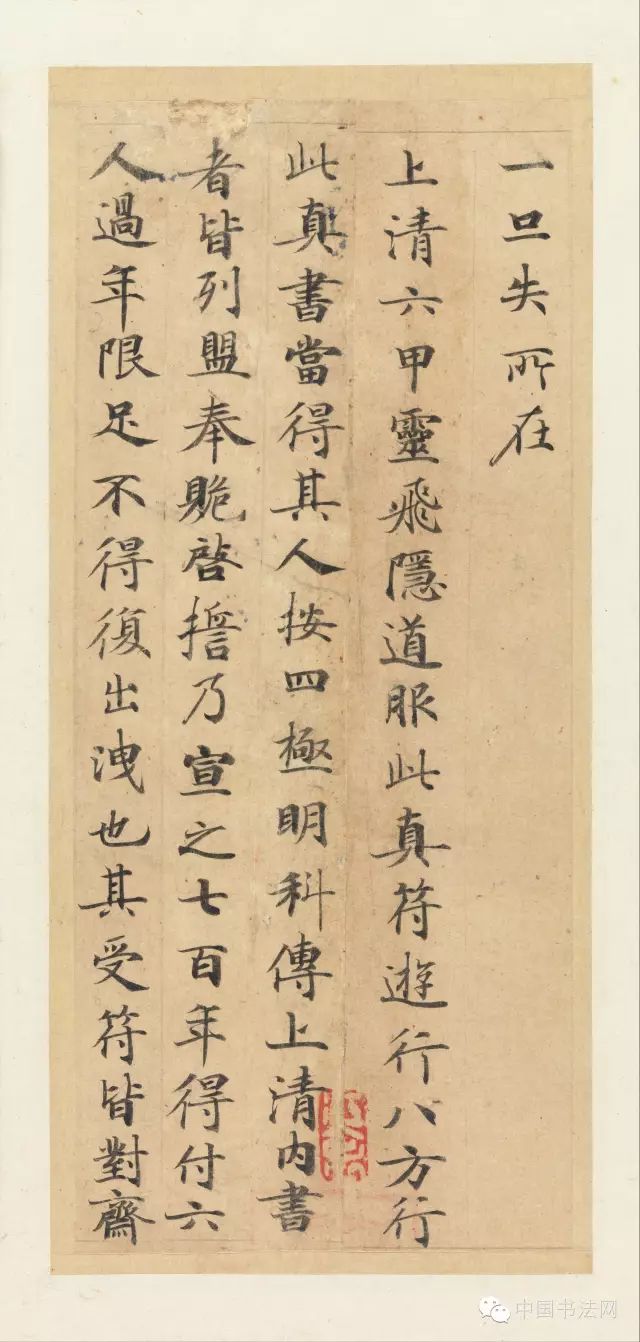 一旦失所在
上清六甲靈飛隱道服此真符遊行八方行
此真書當得其人按四極明科傳上清內書
者皆列盟奉貺啓揩乃宣之七百年得付六
人過年限足不得復出洩也其受符皆對齋
中国书法网